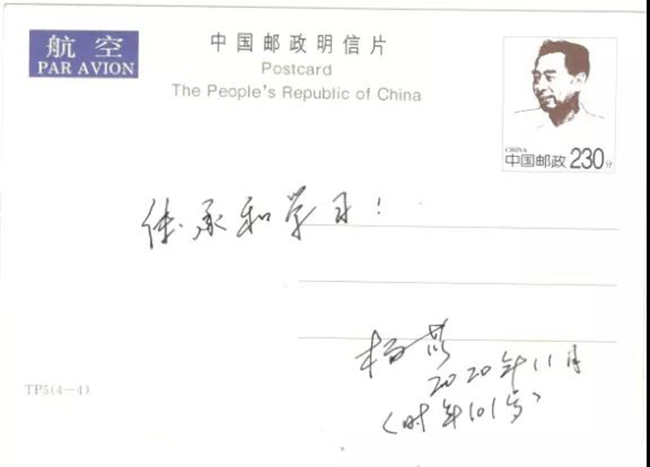 航空
PAR AVION
中国邮政明信片
Postcard
The People's Republic of China
CHINA
中国邮政 230分
传承和学习！
杨苡
2020年11月
（时年101岁）
TP5(4-4)